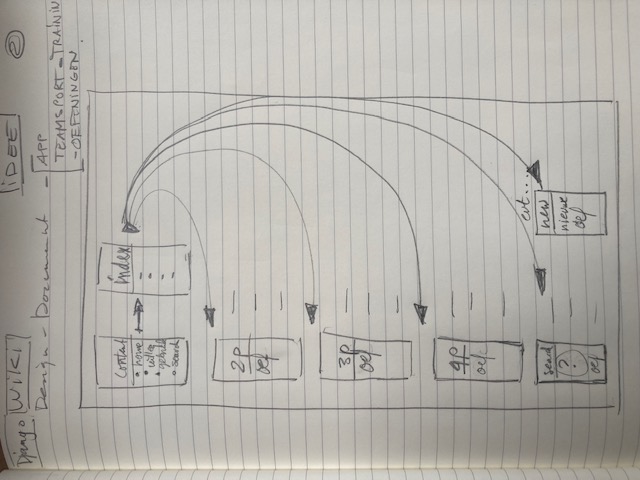 Django Wiki IDEE 2
Design - Document - APP
TEAMSPORT - TRAININ
- OEFENINGEN
Content index
home
uitleg
gebruik
search
2p
oef
3p
oef
4p
oef
evt....
search new
? nieuwe
oef oef